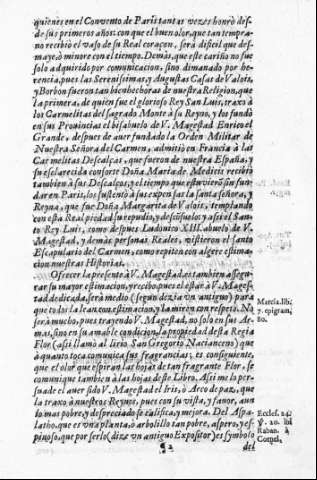 quienes en el Convento de Paris tantas vezes honrò des-
de sus primeros años: con que el buen olor, que tan tempra-
no recibiò el vaso de su Real coraçon, serà dificil que des-
maye, ò minore con el tiempo. Demàs, que este cariño no fue
solo adquirido por comunicacion, sino dimanado por he-
rencia, pues las Serenissimas, y Augustas Casas de Valois,
y Borbon fueron tan bienhechoras de nuestra Religion, que
la primera, de quien fue el glorioso Rey San Luis, traxo à
los Carmelitas del sagrado Monte à su Reyno, y los fundò
en sus Provincias el bisabuelo de V. Magestad Enrico el
Grande, despues de aver fundado la Orden Militar de
Nuestra Señora del Carmen, admitiò en Francia à las
Carmelitas Descalças, que fueron de nuestra España, y
su esclarecida consorte Doña Maria de Medicis recibiò
tambien à sus Descalços, y el tiempo que estuvierõ sin fun-
dar en Paris, los sustentò à sus expensas la santa señora, y
Reyna, que fue Doña Margarita de Valois, templando
con esta Real piedad su repudio, y desconsuelo: y assi el San-
to Rey Luis, como despues Ludovico XIII. abuelo de V.
Magestad, y demàs personas Reales, vistieron el santo
Escapulario del Carmen, como repiten con alegre estima-
cion nuestras Historias.
Ofrecer la presente à V. Magestad, es tambien assegu-
rar su mayor estimacion, y recibo, pues el estàr à V. Mages-
tad dedicada, serà medio (segun dezia vn antiguo) para
que todos la lean con estimacion, y la miren con respeto. No
serà mucho, pues trayendo V. Magestad, no solo en sus Ar-
mas, sino en su amable condicion, la propiedad desta Regia
Flor (assi llamò al lirio San Gregorio Nacianceno) que
à quanto toca comunica sus fragrancias; es consiguiente,
que el olor que espiran las hojas de tan fragrante Flor, se
comunique tambien à las hojas deste Libro. Assi me lo per-
suade el aver sido V. Magestad el Iris, ò Arco de paz, que
la traxo à nuestros Reynos, pues con su vista, y favor, aun
lo mas pobre, y despreciado se califica, y mejora. Del Aspa-
latho, que es vna planta, ò arbolillo tan pobre, aspero, y es-
pinoso, que por serlo (dize vn antiguo Expositor) es symbolo
¶2 del
Marcia. lib.
7. epigram.
80.
Eccles. 24.
℣. 20. ibi
Raban. à
Cornel.